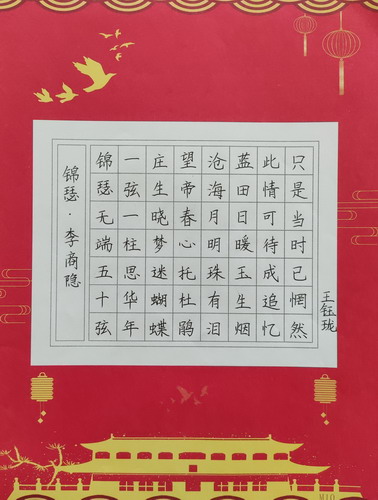 锦瑟·李商隐
锦瑟无端五十弦
一弦一柱思华年
庄生晓梦迷蝴蝶
望帝春心托杜鹃
沧海月明珠有泪
蓝田日暖玉生烟
此情可待成追忆
只是当时已惘然
王钰珑